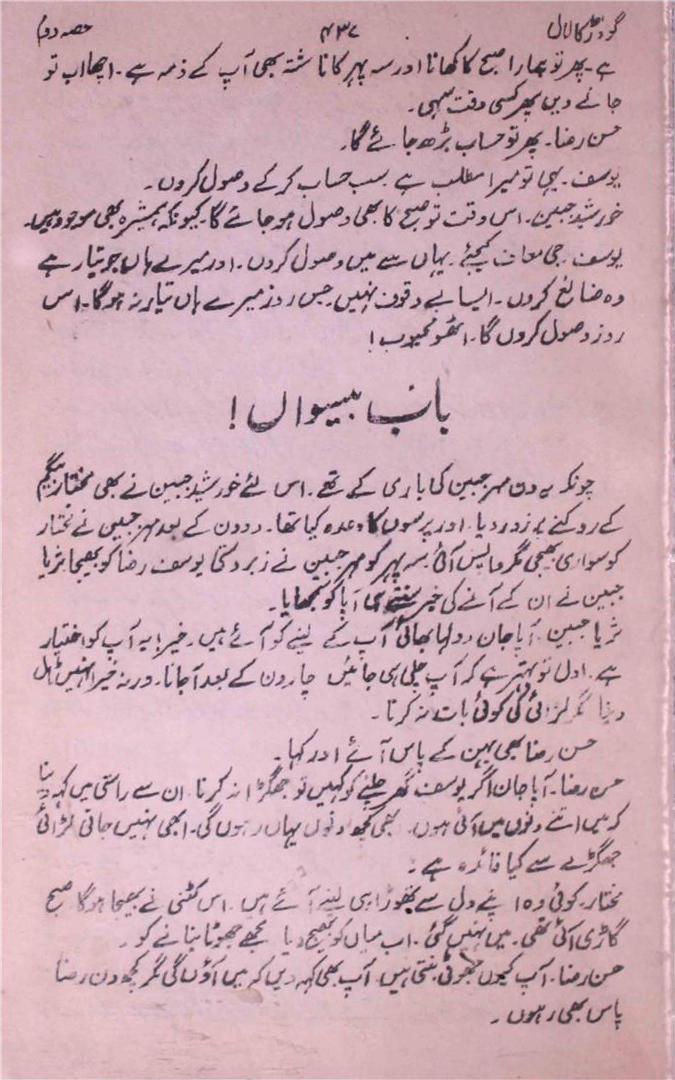 گودڑ کا لال ۴۳۷ حصہ دوم
ہے۔ پھر تو ہمارا صبح کا کھانا اور سہ پہر کا ناشتہ بھی آپ کے ذمہ ہے۔ اچھا اب تو
جانے دیں پھر کسی وقت سہی۔
حسن رضا۔ پھر تو حساب بڑھ جائے گا۔
یوسف۔ یہی تو میرا مطلب ہے سب حساب کر کے وصول کروں۔
خورشید جبین۔ اس وقت تو صبح کا بھی وصول ہو جائے گا۔ کیونکہ ہمشیرہ بھی موجود ہیں۔
یوسف۔ جی معاف کیجئے۔ یہاں سے میں وصول کروں۔ اور میرے ہاں جو تیار ہے
وہ ضائع کروں۔ ایسا بے وقوف نہیں جس روز میرے ہاں تیار نہ ہوگا۔ اس
روز وصول کروں گا۔ اٹھو محبوب!
باب بیسواں!
چونکہ یہ دن مہر جبین کی باری کے تھے۔ اس لئے خورشید جبین نے بھی مختار بیگم
کے روکنے پر زور دیا۔ اور پرسوں کا وعدہ کیا تھا۔ دو دن کے بعد مہر جبین نے مختار
کو سواری بھیجی مگر واپس آئی۔ سہ پہر کو مہر جبین نے زبردستی یوسف رضا کو بھیجا ثریا
جبین نے ان کے آنے کی خبر سنتے ہی آپا کو سمجھایا۔
ثریا جبین۔ آپا جان دولہا بھائی آپ کے لینے کو آئے ہیں۔ خیر یہ آپ کو اختیار
ہے۔ اول تو بہتر ہے کہ آپ چلی ہی جائیں چار دن کے بعد آ جانا۔ ورنہ خیر انہیں ٹال
دینا مگر لڑائی کی کوئی بات نہ کرنا۔
حسن رضا بھی بہن کے پاس آئے اور کہا۔
حسن رضا۔ آپا جان اگر یوسف گھر چلنے کو کہیں تو جھگڑا نہ کرنا۔ ان سے راستی میں کہہ دینا
کہ میں اتنے دنوں میں آئی ہوں۔ ابھی کچھ دنوں یہاں رہوں گی۔ ابھی نہیں جاتی لڑائی
جھگڑے سے کیا فائدہ ہے۔
مختار۔ کوئی وہ اپنے دل سے تھوڑا ہی لینے آئے ہیں۔ اس کٹنی نے بھیجا ہوگا صبح
گاڑی آئی تھی۔ میں نہیں گئی۔ اب میاں کو بھیج دیا مجھے جھوٹا بنانے کو۔
حسن رضا۔ آپ کیوں جھوٹی بنتی ہیں آپ بھی کہہ دیں کہ میں آؤں گی مگر کچھ دن رضا
پاس بھی رہوں۔